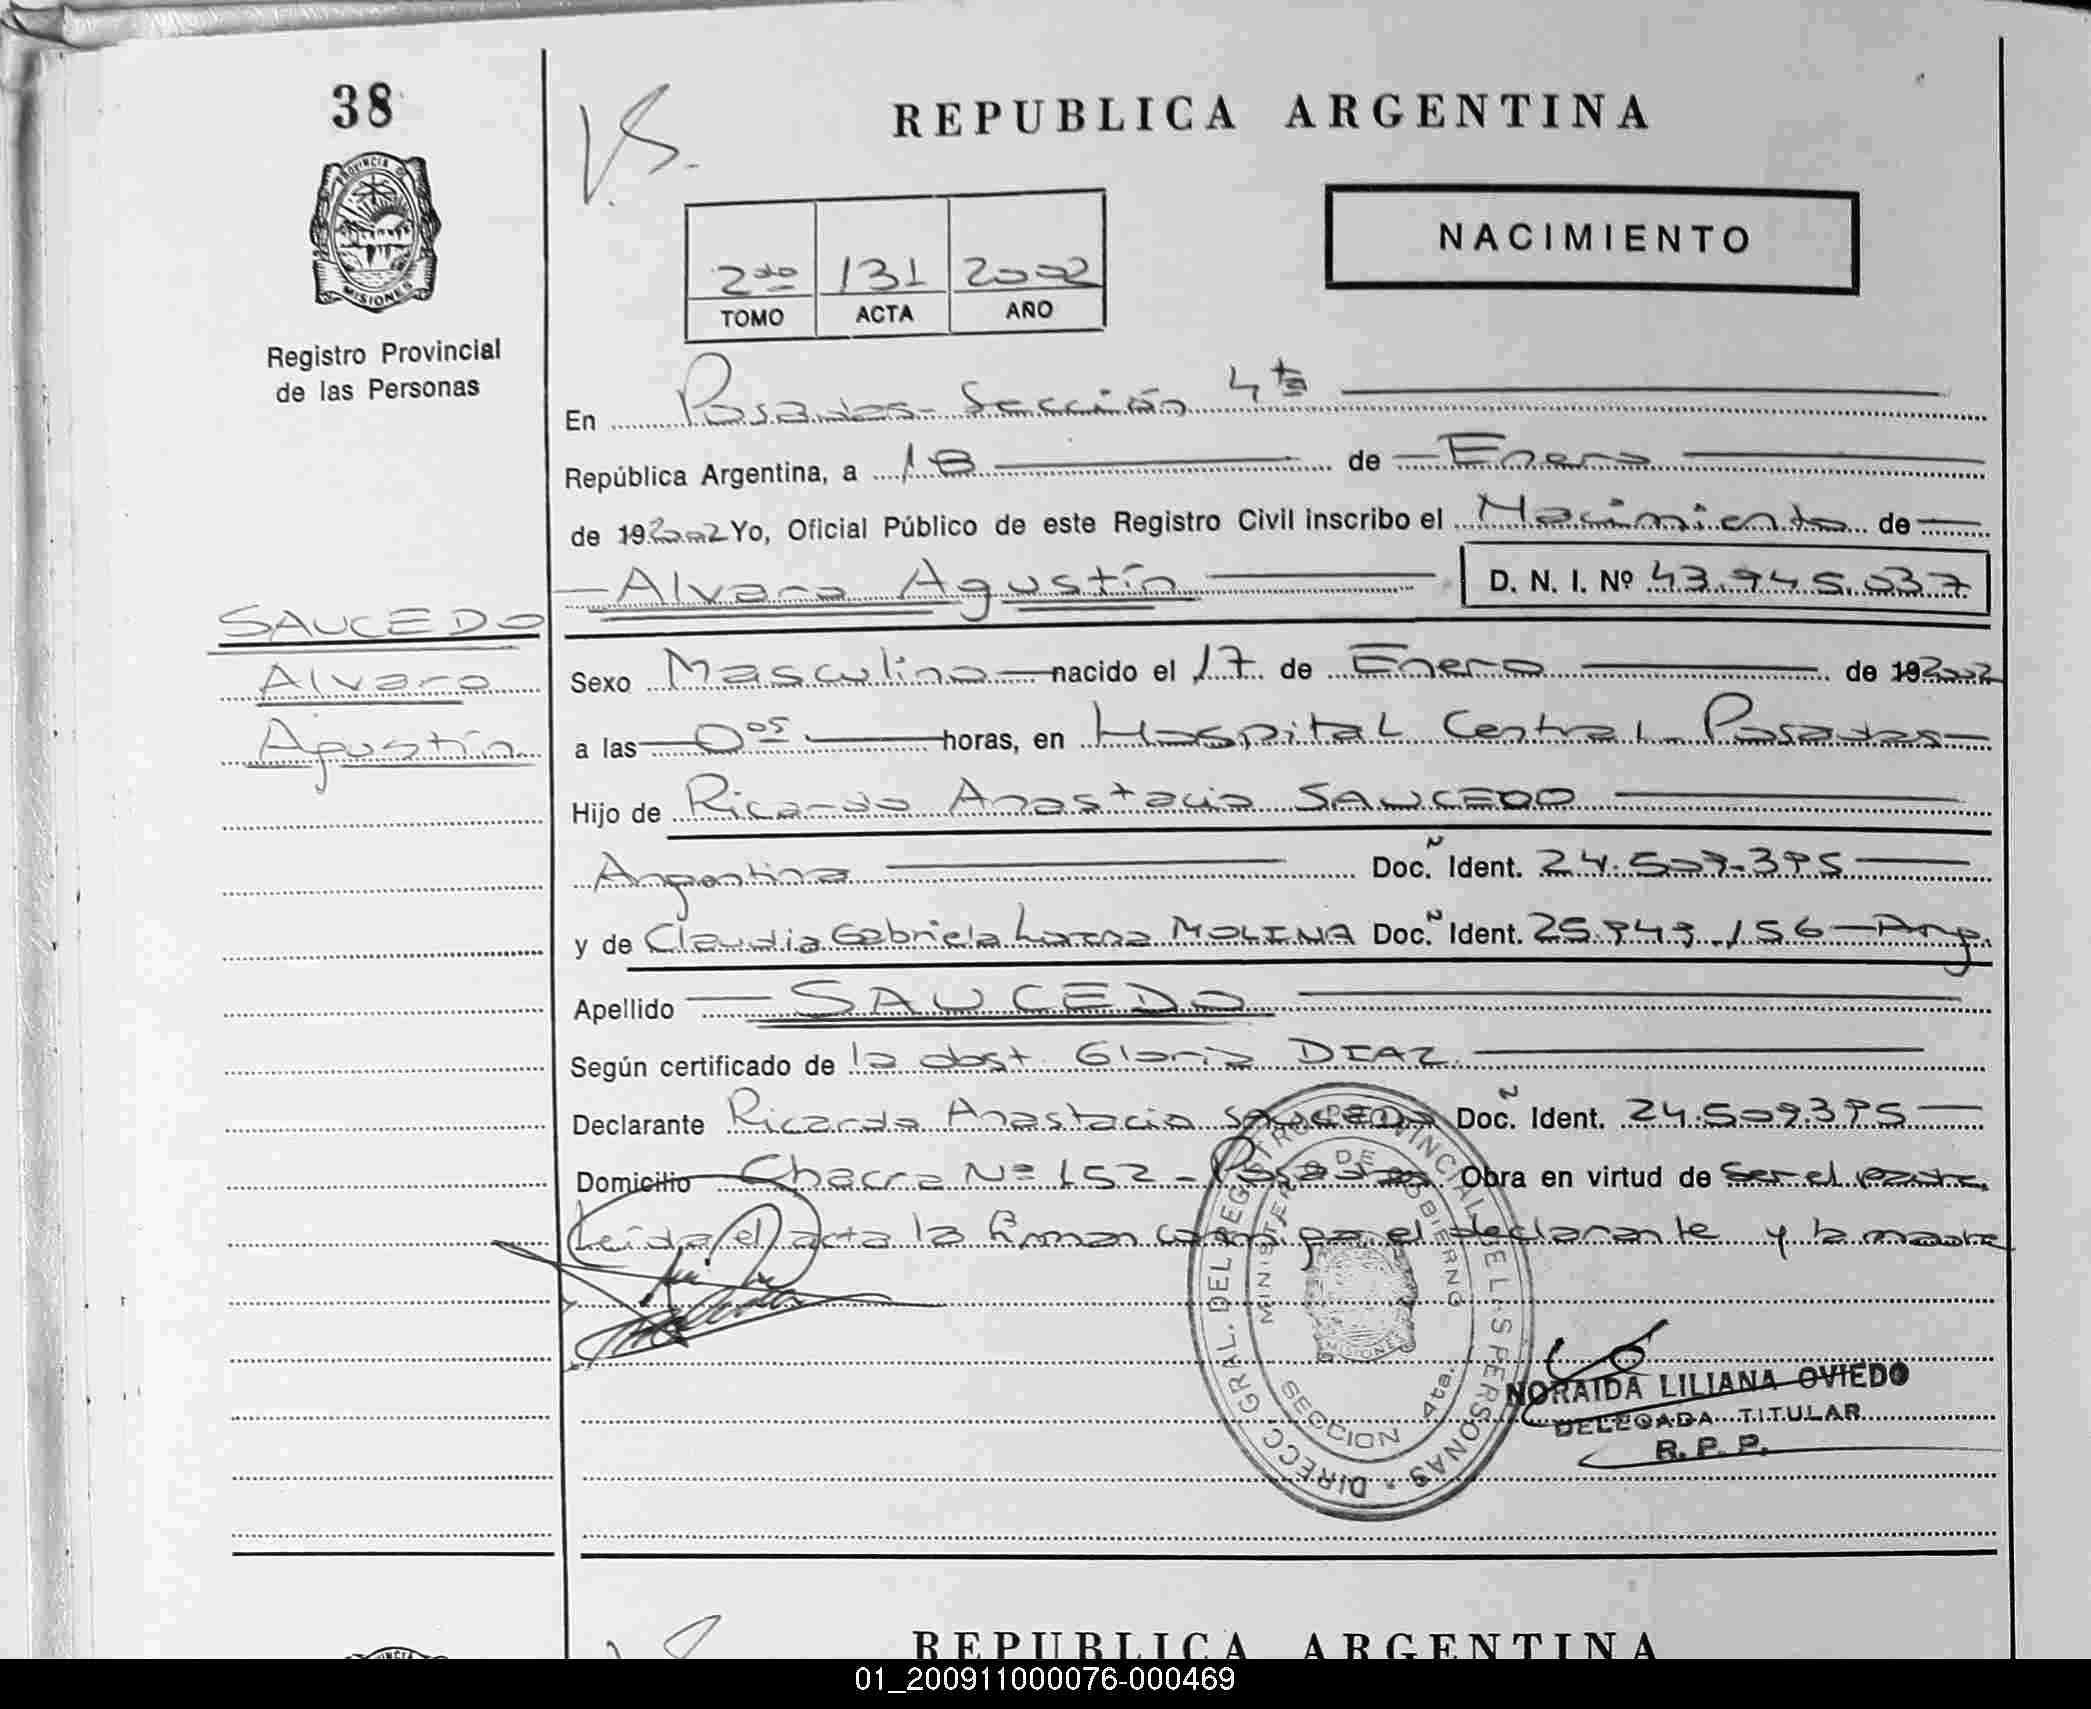 38
V.S.
REPUBLICA ARGENTINA
PROVINCIA DE
MISIONES
Registro Provincial
de las Personas
NACIMIENTO
2do 131 2002
TOMO ACTA AÑO
En Posadas - Sección 4ta
República Argentina, a 18 de Enero
de 192002 Yo, Oficial Público de este Registro Civil inscribo el Nacimiento de
Alvaro Agustín D. N. I. Nº 43.945.037
SAUCEDO
Alvaro
Agustín
Sexo Masculino nacido el 17 de Enero de 192002
a las 0 05 horas, en Hospital Central - Posadas
Hijo de Ricardo Anastacio SAUCEDO
Argentina Doc. Ident. 24.509.395
y de Claudia Gabriela MOLINA Doc. Ident. 25.949.156 - Arg.
Apellido SAUCEDO
Según certificado de la obst. Gloria DIAZ
Declarante Ricardo Anastacio SAUCEDO Doc. Ident. 24.509.395
Domicilio Chacra Nº 152 - Posadas Obra en virtud de ser el padre.
Leida el acta la firman conmigo el declarante y la madre
DIRECC. GRAL. DEL REGISTRO PROVINCIAL DE LAS PERSONAS
MINISTERIO DE GOBIERNO
MISIONES
SECCION 4ta.
NORAIDA LILIANA OVIEDO
DELEGADA TITULAR
R. P. P.
REPUBLICA ARGENTINA
01_200911000076-000469